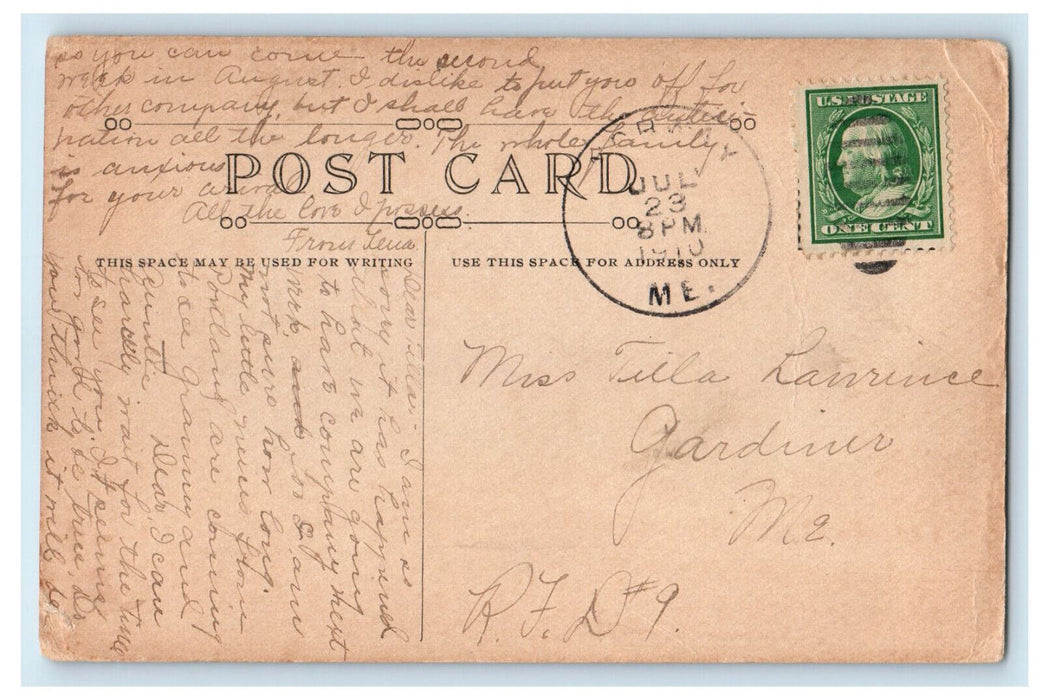 POST CARD
THIS SPACE MAY BE USED FOR WRITING
USE THIS SPACE FOR ADDRESS ONLY
U.S. POSTAGE
ONE CENT
JUL
23
8 PM
1910
ME.
Miss Tilla Lawrince
Gardiner
Me.
R.F.D #9.
Dear Tillie:- I am so
sorry it has happened
that we are going
to have company next
week, and so I am
not sure how long.
My little neices from
Portland are coming
to see grammy and
Auntie. Dear, I can
harcely wait for the time
to see you. It seems
too good to be true. Do
you think it will be
so you can come the second
week in August. I dislike to put you off for
other company, but I shall have the antici-
pation all the longer. The whole family
is anxious
for your
All the love I possess.
From Lena.